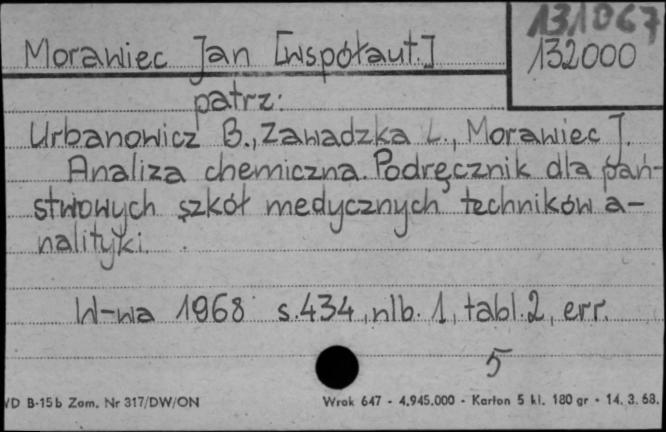 131067
Morawiec Jan [współaut.] 132000
patrz:
Urbanowicz B., Zawadzka L., Morawiec J.
Analiza chemiczna. Podręcznik dla pań-
stwowych szkół medycznych techników a-
nalityki.
W-wa 1968 s.434, nlb. 1, tabl. 2, err.
5
VD B-15b Zam. Nr 317/DW/ON Wrok 647 - 4.945.000 - Karton 5 kl. 180 gr - 14. 3. 68.